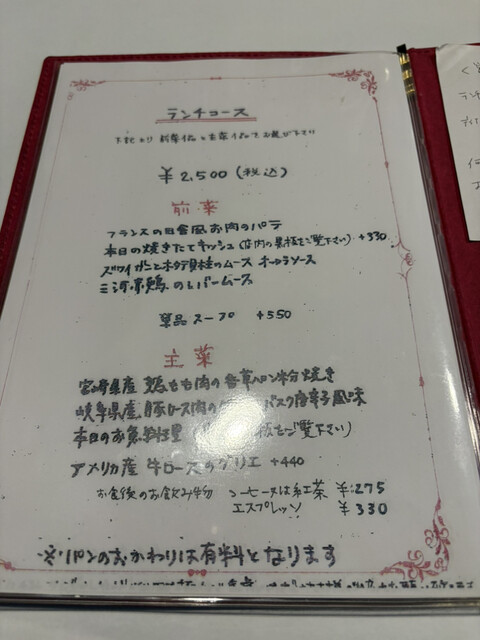 ランチコース
下記より前菜1品と主菜1品でお選び下さい
¥2,500(税込)
前菜
フランスの田舎風お肉のパテ
本日の焼きたてキッシュ(店内の黒板をご覧下さい) +330
ズワイガニとホタテ貝柱のムース オーロラソース
三河赤鶏のレバームース
単品スープ +550
主菜
宮崎県産 鶏もも肉の香草パン粉焼き
岐阜県産 豚ロース肉の バスク唐辛子風味
本日のお魚料理 板をご覧下さい)
アメリカ産 牛ロースのグリエ +440
お食後のお飲み物 コーヒー又は紅茶 ¥275
エスプレッソ ¥330
※パンのおかわりは有料となります